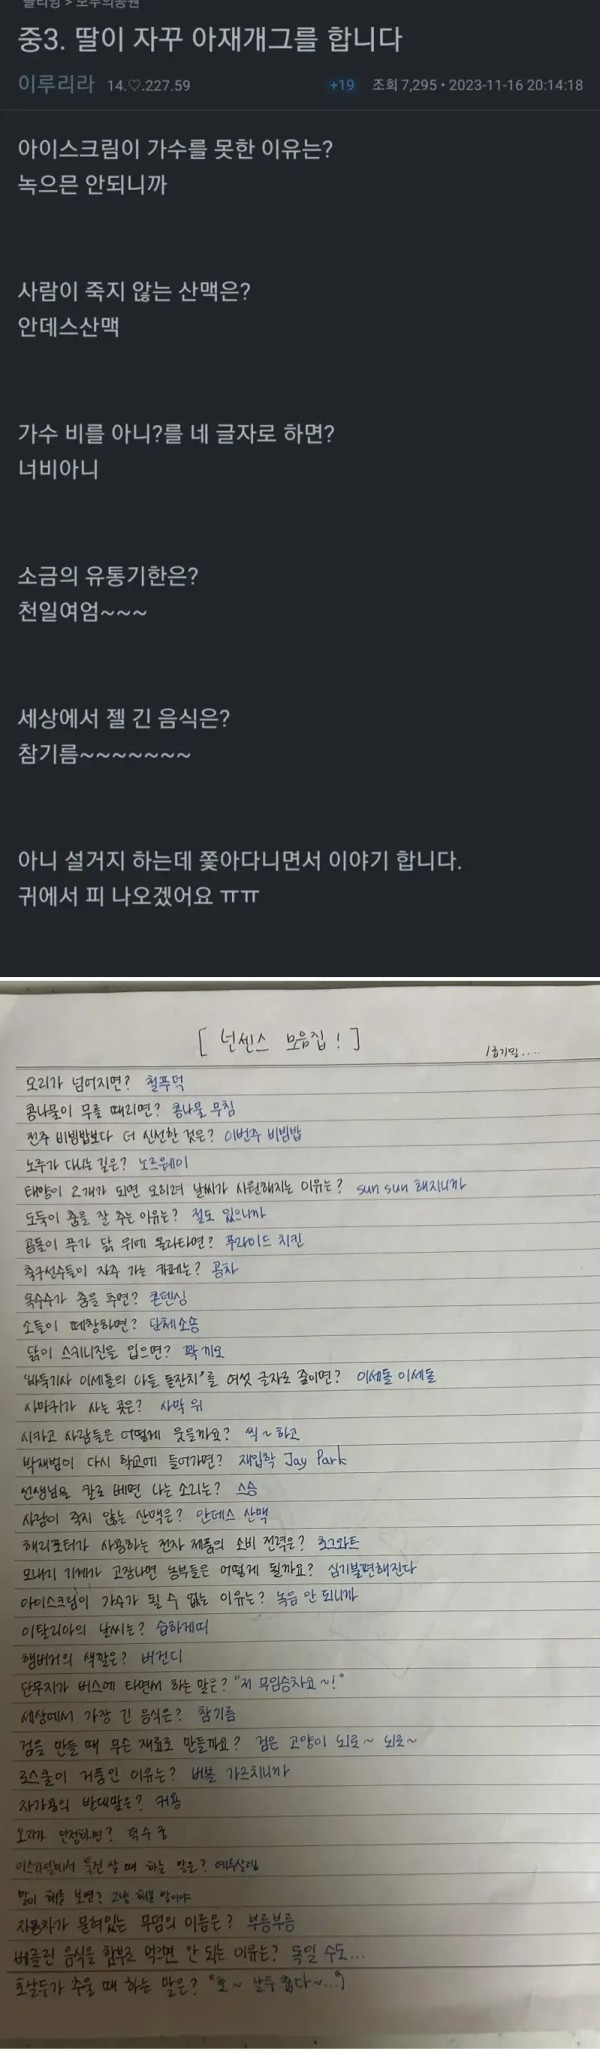 클리앙 > 모두의공원
중3. 딸이 자꾸 아재개그를 합니다
이루리라 14.♡.227.59 +19 조회 7,295 • 2023-11-16 20:14:18
아이스크림이 가수를 못한 이유는?
녹으믄 안되니까
사람이 죽지 않는 산맥은?
안데스산맥
가수 비를 아니?를 네 글자로 하면?
너비아니
소금의 유통기한은?
천일여엄~~~
세상에서 젤 긴 음식은?
참기름~~~~~~~
아니 설거지 하는데 쫓아다니면서 이야기 합니다.
귀에서 피 나오겠어요 ㅠㅠ
[ 넌센스 모음집 ! ]
오리가 넘어지면? 철푸덕
콩나물이 무를 때리면? 콩나물 무침
전주 비빔밥보다 더 신선한 것은? 이번주 비빔밥
노루가 다니는 길은? 노르웨이
태양이 2개가 되면 오히려 날씨가 시원해지는 이유는? sun sun 해지니까
도둑이 춤을 잘 추는 이유는? 절도 있으니까
곰돌이 푸가 닭 위에 올라타면? 푸라이드 치킨
축구선수들이 자주 가는 카페는? 공차
옥수수가 춤을 추면? 콘덴싱
소들이 떼창하면? 단체소송
닭이 스키니진을 입으면? 꽉 끼오
'바둑기사 이세돌의 아들 돌잔치'를 여섯 글자로 줄이면? 이세돌 이세돌
사마귀가 사는 곳은? 사막 위
시카고 사람들은 어떻게 웃을까요? 씩~하고
박재범이 다시 학교에 들어가면? 재입학 Jay Park
선생님을 칼로 베면 나는 소리는? 스승
사람이 죽지 않는 산맥은? 안데스 산맥
해리포터가 사용하는 전자 제품의 소비 전력은? 호그와트
모내기 기계가 고장나면 농부들은 어떻게 될까요? 심기불편해진다
아이스크림이 가수가 될 수 없는 이유는? 녹음 안 되니까
이탈리아의 날씨는? 습하게띠
햄버거의 색깔은? 버건디
단무지가 버스에 타면서 하는 말은? "저 무임승차요~!"
세상에서 가장 긴 음식은? 참기름
검을 만들 때 무슨 재료로 만들까요? 검은 고양이 뇌로~ 뇌로~
로스쿨이 거품인 이유는? 버블 가르치니까
자가용의 반대말은? 커용
오리가 단정하면? 덕수궁
이스라엘에서 물건 살 때 하는 말은? 예루살렘
말이 해를 보면? 그냥 해본 말이야
자동차가 묻혀있는 무덤의 이름은? 부릉부릉
베를린 음식을 함부로 먹으면 안 되는 이유는? 독일 수도...
호날두가 추울 때 하는 말은? "호~ 날두 춥다~..."